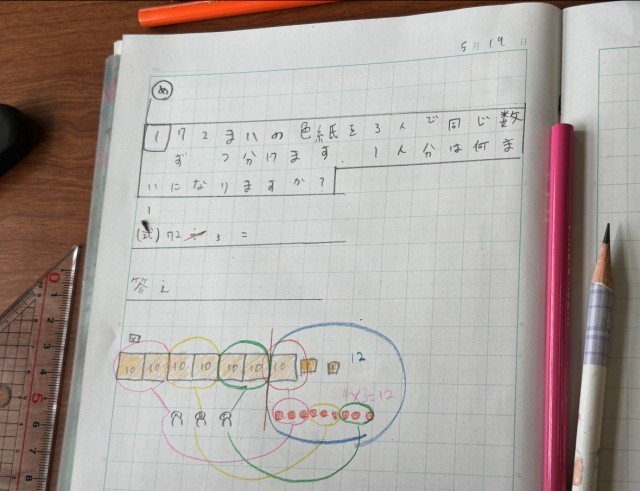 5 19
め
1 72まいの色紙を3人で同じ数
ずつ分けます。1人分は何ま
いになりますか？
(式) 72÷3=
答え
図
10 10 10 10 10 10 10 1 1 12
4×3=12